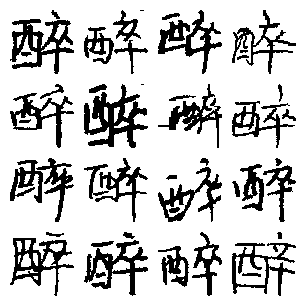 醉醉醉醉
醉醉醉醉
醉醉醉醉
醉醉醉醉